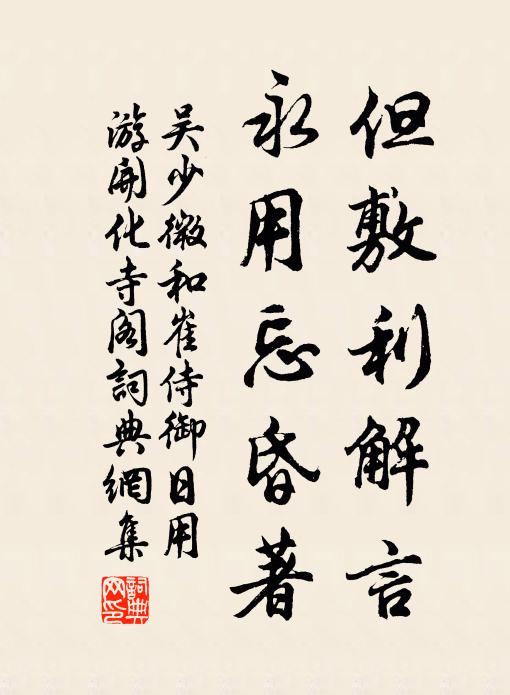 但敷利解言
永用忘昏著
吴少微和崔侍御日用
游開化寺阁詞典網集
詞典网印